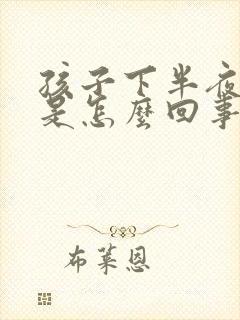 孩子下半夜
是怎麼回事
布莱恩